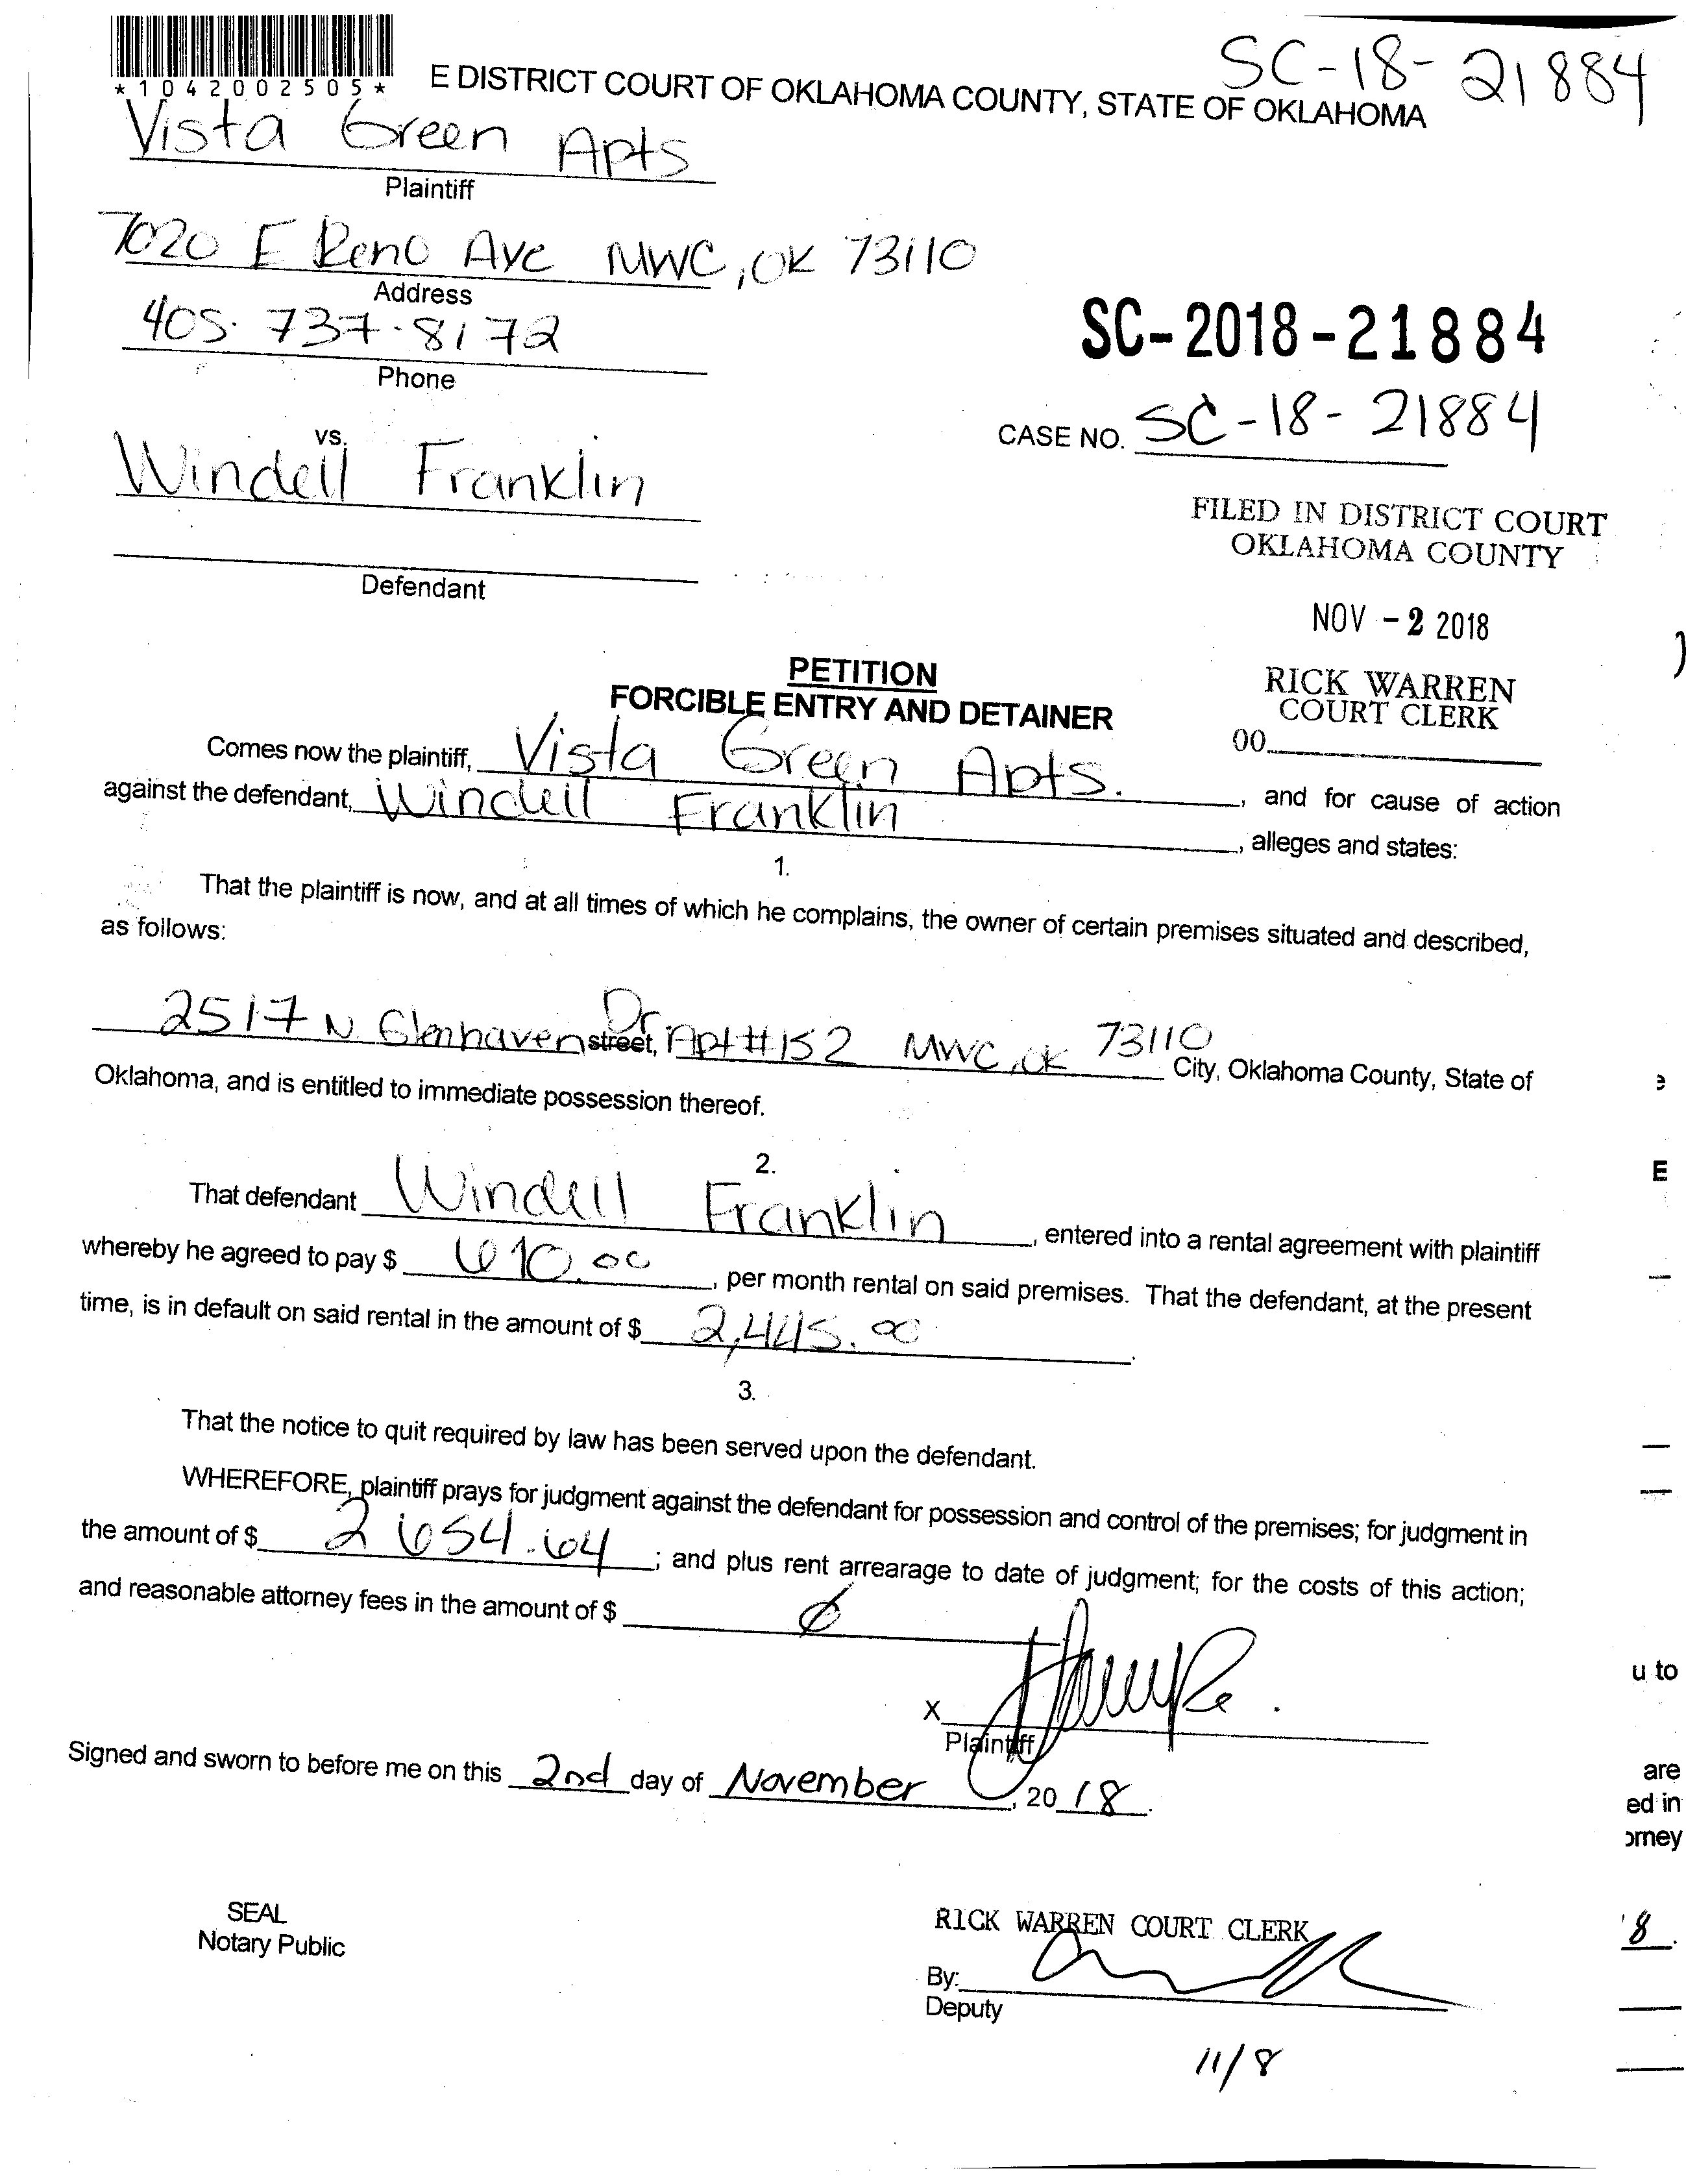 *1042002505*
SC-18-21884
E DISTRICT COURT OF OKLAHOMA COUNTY, STATE OF OKLAHOMA
Vista Green Apts
Plaintiff
7020 E Reno Ave MWC, OK 73110
Address
405.737.8172
Phone
SC-2018-21884
CASE NO. SC-18-21884
vs.
Windell Franklin
Defendant
FILED IN DISTRICT COURT
OKLAHOMA COUNTY
NOV -2 2018
RICK WARREN
COURT CLERK
00
PETITION
FORCIBLE ENTRY AND DETAINER
Comes now the plaintiff, Vista Green Apts.
against the defendant, Windell Franklin, and for cause of action
, alleges and states:
1.
That the plaintiff is now, and at all times of which he complains, the owner of certain premises situated and described,
as follows:
2517 N Glenhaven Dr street, Apt #152 MWC, OK 73110 City, Oklahoma County, State of
Oklahoma, and is entitled to immediate possession thereof.
2.
That defendant Windell Franklin, entered into a rental agreement with plaintiff
whereby he agreed to pay $ 610.00, per month rental on said premises. That the defendant, at the present
time, is in default on said rental in the amount of $ 2,445.00.
3.
That the notice to quit required by law has been served upon the defendant.
WHEREFORE, plaintiff prays for judgment against the defendant for possession and control of the premises; for judgment in
the amount of $ 2654.64; and plus rent arrearage to date of judgment; for the costs of this action;
and reasonable attorney fees in the amount of $ ∅
X
Plaintiff
Signed and sworn to before me on this 2nd day of November, 2018.
SEAL
Notary Public
RICK WARREN COURT CLERK
By:
Deputy
11/8
)
E
u to
are
ed in
orney
'8.